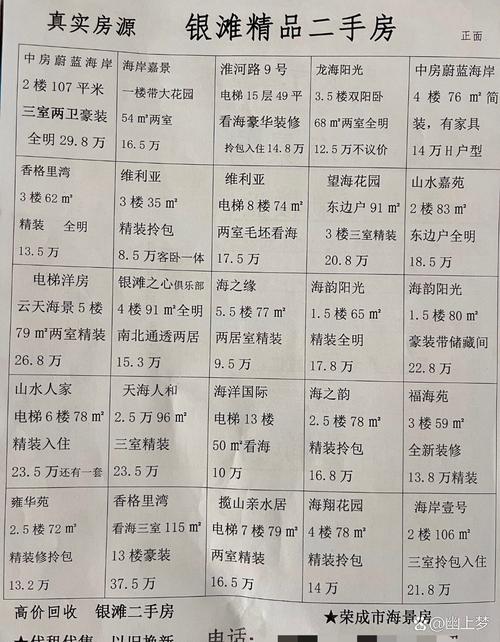 真实房源 银滩精品二手房 正面
中房蔚蓝海岸
2楼107平米
三室两卫豪装
全明29.8万
海岸嘉景
一楼带大花园
54㎡两室
16.5万
淮河路9号
电梯15层49平
看海豪华装修
拎包入住14.8万
龙海阳光
3.5楼双阳卧
68㎡两室全明
12.5万不议价
中房蔚蓝海岸
4楼76㎡简
装，有家具
14万H户型
香格里湾
3楼62㎡
精装 全明
13.5万
维利亚
3楼35㎡
精装拎包
8.5万客卧一体
维利亚
电梯8楼74㎡
两室毛坯看海
17.5万
望海花园
东边户91㎡
3楼三室精装
20.8万
山水嘉苑
2楼83㎡
东边户全明
18.5万
电梯洋房
云天海景5楼
79㎡两室精装
26.8万
银滩之心俱乐部
4楼91㎡全明
南北通透两居
15.3万
海之缘
5.5楼77㎡
两居室精装
9.5万
海韵阳光
1.5楼65㎡
精装全明
17.8万
海韵阳光
1.5楼80㎡
豪装带储藏间
22.8万
山水人家
电梯6楼78㎡
精装入住
23.5万还有一套
天海人和
2.5万96㎡
三室精装
23.5万
海洋国际
电梯13楼
50㎡看海
10万
海之韵
2.5楼78㎡
精装拎包
16.8万
福海苑
3楼59㎡
全新装修
13.8万精装
雍华苑
2.5楼72㎡
精装修拎包
13.2万
香格里湾
看海三室115㎡
13楼豪装
37.5万
揽山亲水居
电梯7楼79㎡
两室精装
16.5万
海翔花园
4楼78㎡
精装拎包
14万
海岸壹号
2楼106㎡
三室拎包入住
21.8万
高价回收 银滩二手房 ★荣成市海景房
★代租代售 以旧换新 电话:
@幽上梦